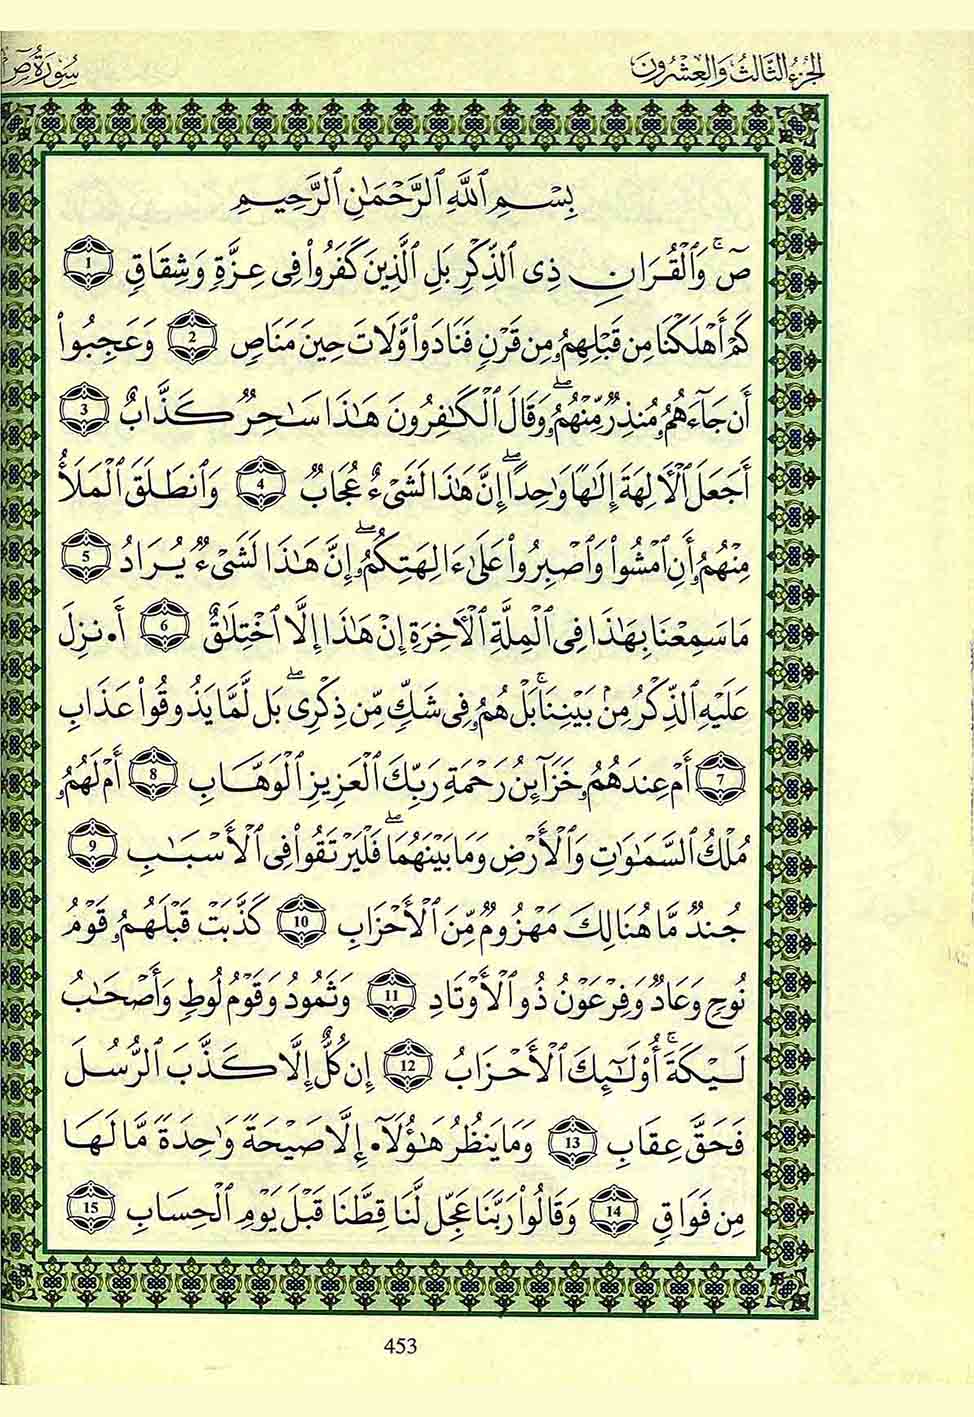 الجزء الثالث والعشرون
سورة ص
بِسْمِ ٱللَّهِ ٱلرَّحْمَٰنِ ٱلرَّحِيمِ
صٓ ۚ وَٱلْقُرَانِ ذِى ٱلذِّكْرِ بَلِ ٱلَّذِينَ كَفَرُوا۟ فِى عِزَّةٍ وَشِقَاقٍ 1
كَمْ أَهْلَكْنَا مِن قَبْلِهِمُۥ مِن قَرْنٍ فَنَادَوا۟ وَّلَاتَ حِينَ مَنَاصٍ 2 وَعَجِبُوٓا۟
أَن جَآءَهُمُۥ مُنذِرٌ مِّنْهُمُۥ ۖ وَقَالَ ٱلْكَٰفِرُونَ هَٰذَا سَٰحِرٌ كَذَّابٌ 3
أَجَعَلَ ٱلْأَلِهَةَ إِلَٰهًا وَٰحِدًا ۖ إِنَّ هَٰذَا لَشَىْءٌ عُجَابٌ 4 وَٱنطَلَقَ ٱلْمَلَأُ
مِنْهُمُۥ أَنُ ٱمْشُوا۟ وَٱصْبِرُوا۟ عَلَىٰ ءَالِهَتِكُمُۥ ۖ إِنَّ هَٰذَا لَشَىْءٌ يُرَادُ 5
مَا سَمِعْنَا بِهَٰذَا فِى ٱلْمِلَّةِ ٱلْأَخِرَةِ إِنْ هَٰذَا إِلَّا ٱخْتِلَٰقٌ 6 أَ۟نزِلَ
عَلَيْهِ ٱلذِّكْرُ مِنۢ بَيْنِنَا ۚ بَلْ هُمُۥ فِى شَكٍّ مِّن ذِكْرِى ۖ بَل لَّمَّا يَذُوقُوا۟ عَذَابِ
7 أَمْ عِندَهُمُۥ خَزَآئِنُ رَحْمَةِ رَبِّكَ ٱلْعَزِيزِ ٱلْوَهَّابِ 8 أَمْ لَهُمُۥ
مُلْكُ ٱلسَّمَٰوَٰتِ وَٱلْأَرْضِ وَمَا بَيْنَهُمَا ۖ فَلْيَرْتَقُوا۟ فِى ٱلْأَسْبَٰبِ 9
جُندٌ مَّا هُنَالِكَ مَهْزُومٌ مِّنَ ٱلْأَحْزَابِ 10 كَذَّبَتْ قَبْلَهُمُۥ قَوْمُ
نُوحٍ وَعَادٌ وَفِرْعَوْنُ ذُو ٱلْأَوْتَادِ 11 وَثَمُودُ وَقَوْمُ لُوطٍ وَأَصْحَٰبُ
لَيْكَةَ ۚ أُو۟لَٰٓئِكَ ٱلْأَحْزَابُ 12 إِن كُلٌّ إِلَّا كَذَّبَ ٱلرُّسُلَ
فَحَقَّ عِقَابِ 13 وَمَا يَنظُرُ هَٰٓؤُلَآ إِلَّا صَيْحَةً وَٰحِدَةً مَّا لَهَا
مِن فَوَاقٍ 14 وَقَالُوا۟ رَبَّنَا عَجِّل لَّنَا قِطَّنَا قَبْلَ يَوْمِ ٱلْحِسَابِ 15
453